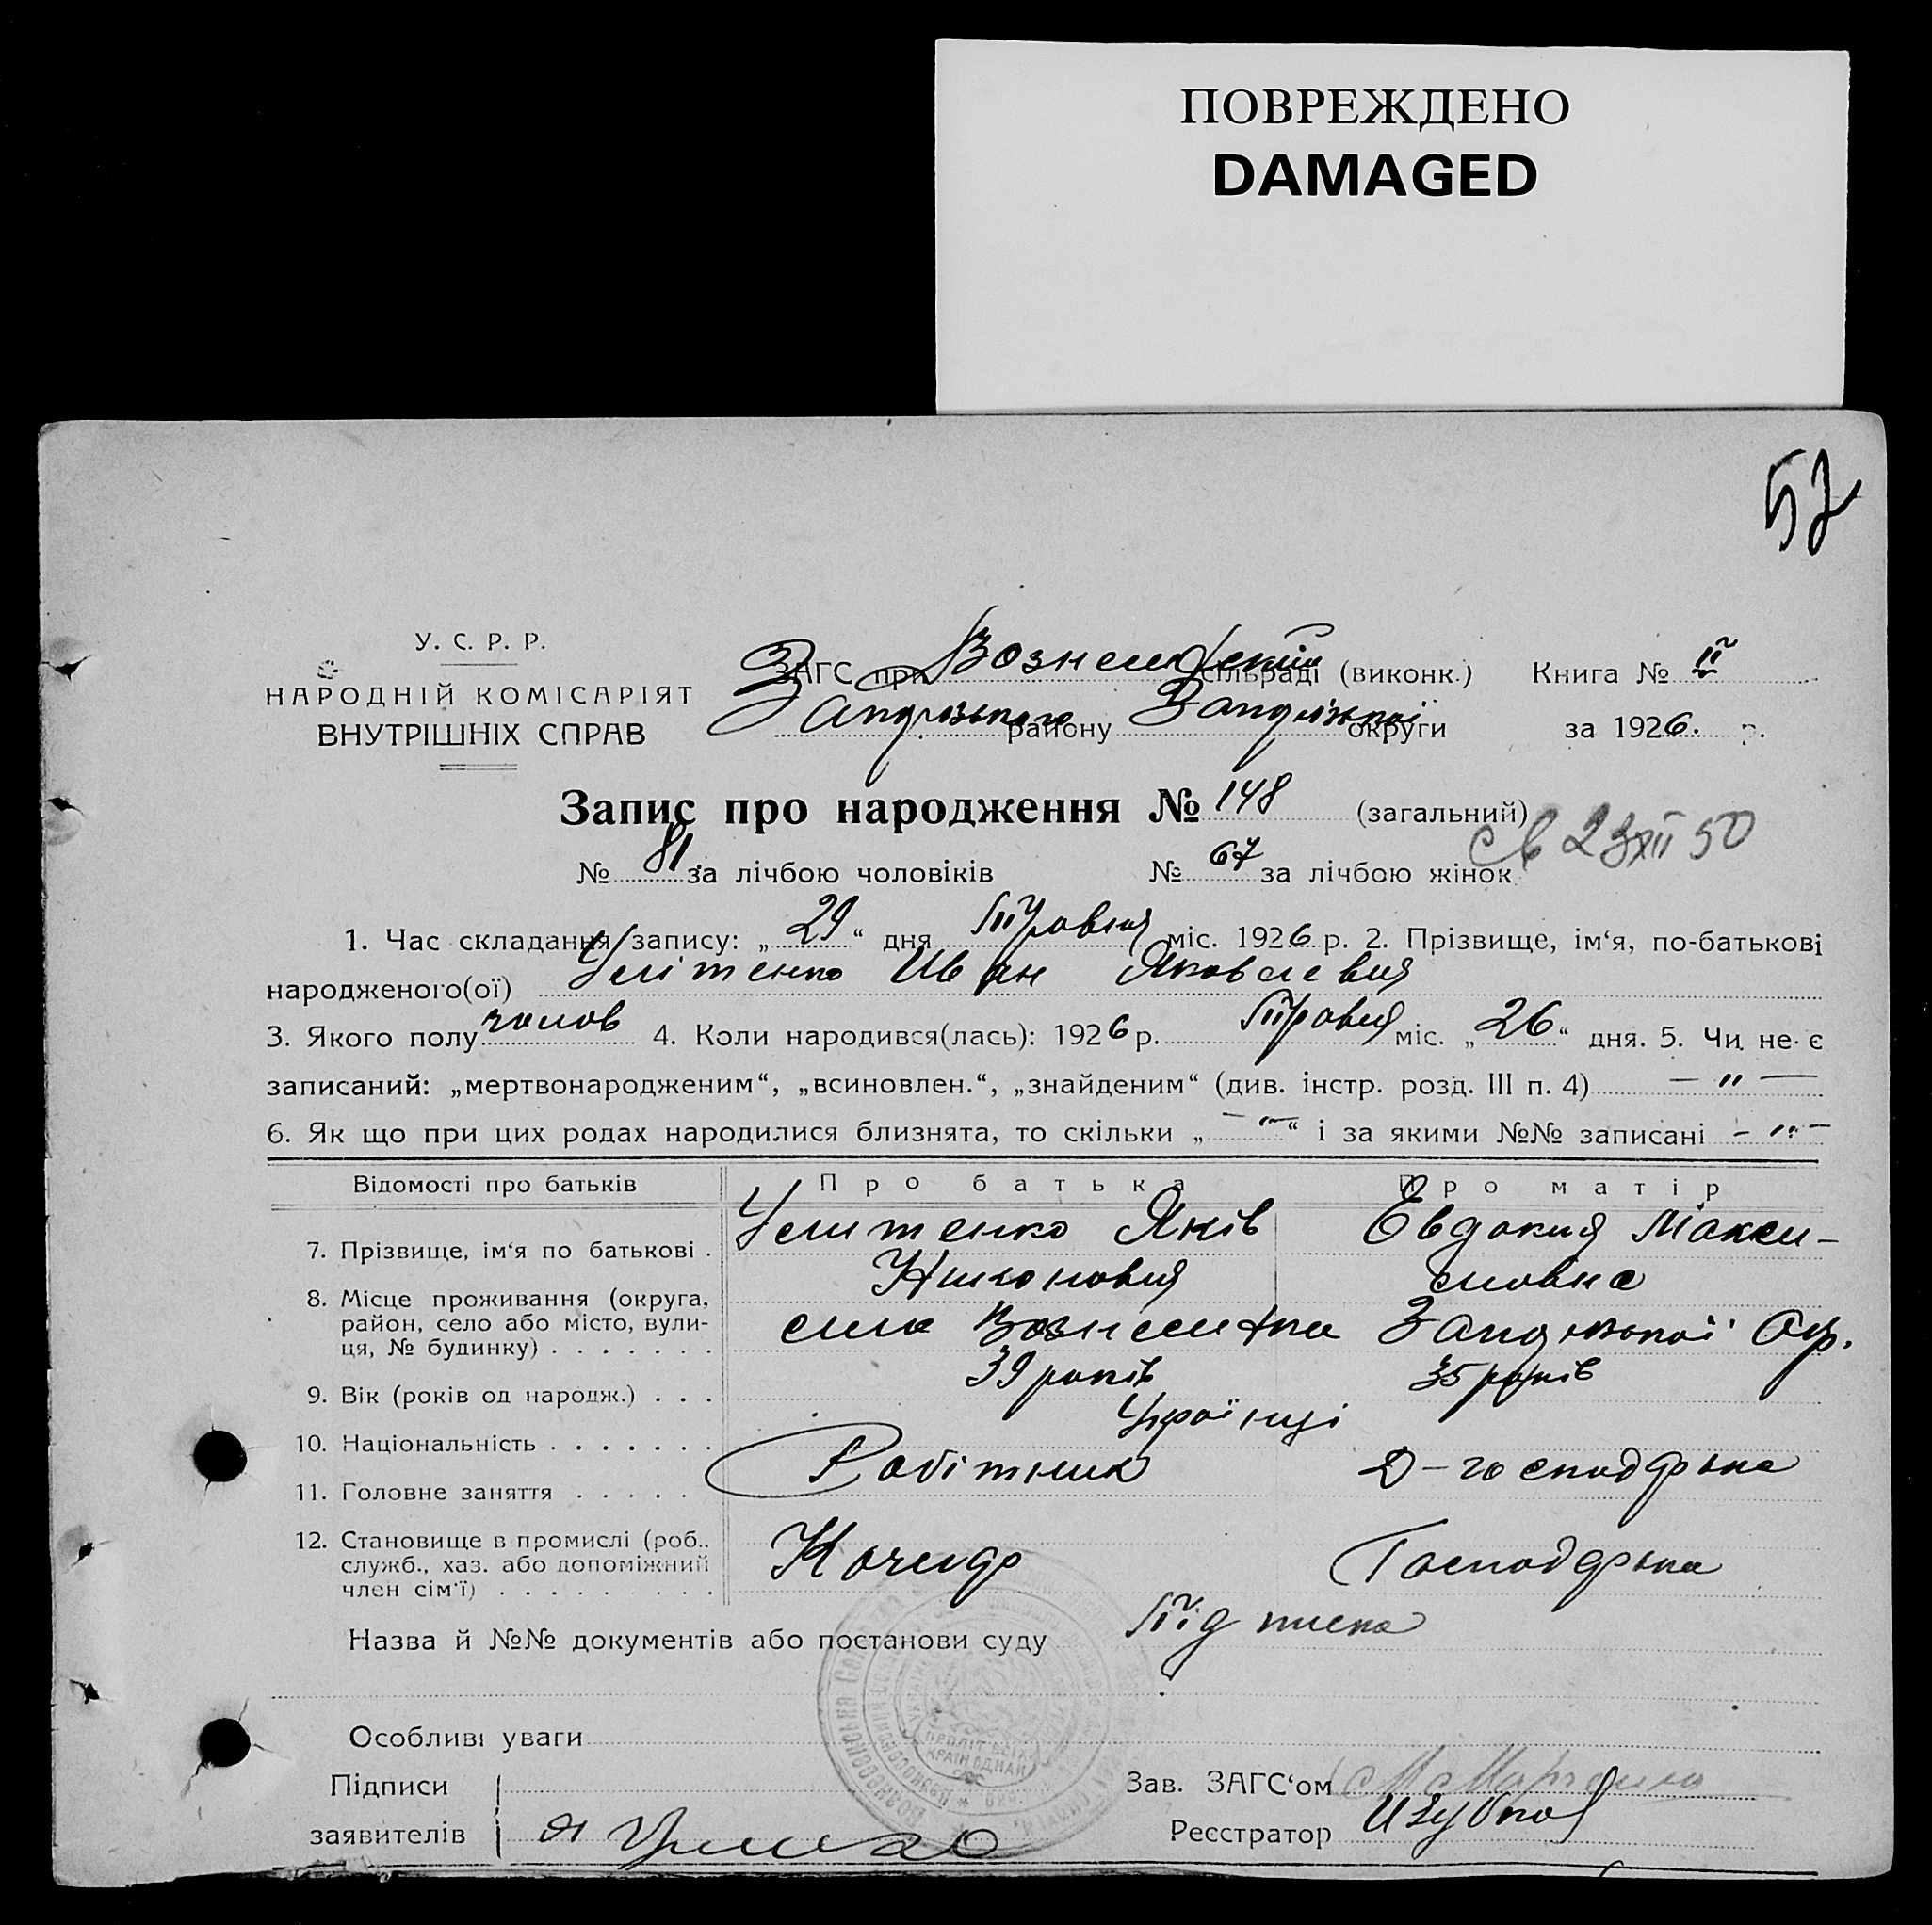 ПОВРЕЖДЕНО
DAMAGED
57
У. С. Р. Р.
НАРОДНІЙ КОМІСАРІЯТ
ВНУТРІШНІХ СПРАВ
ЗАГС при Вознесенській сільраді (виконк.) Книга № II
району округи за 1926. р.
Запис про народження № 148 (загальний)
№ 81 за лічбою чоловіків № 67 за лічбою жінок
св 23 XII 50
1. Час складання запису: „ 29 “ дня Травня міс. 1926 р. 2. Прізвище, ім‘я, по-батькові
народженого(ої) Улітенко Иван Яковлевич
3. Якого полу чолов 4. Коли народився(лась): 1926 р. Травня міс. „ 26 “ дня. 5. Чи не є
записаний: „мертвонародженим“, „всиновлен.“, „знайденим“ (див. інстр. розд. III п. 4) — " —
6. Як що при цих родах народилися близнята, то скільки „ — " — “ і за якими №№ записані — " —
Відомості про батьків Про батька Про матір
7. Прізвище, ім‘я по батькові . Улитенко Яків Евдокия Макси-
Никонович мовна
8. Місце проживання (округа,
район, село або місто, вули-
ця, № будинку) . . . . . . . село Вознесенка Запорізької Окр.
9. Вік (років од народж.) . . . 39 років 35 років
10. Національність . . . . . . . Українці
11. Головне заняття . . . . . Робітник Д-господарка
12. Становище в промислі (роб.,
служб., хаз. або допоміжний
член сім‘ї) . . . . . . . . . Кочегар Господарка
Назва й №№ документів або постанови суду Підписка
Особливі уваги
Підписи
заявителів
Зав. ЗАГС‘ом
Реєстратор
ПРОЛІТ ВСІХ
КРАЇН ЄДНАЙ